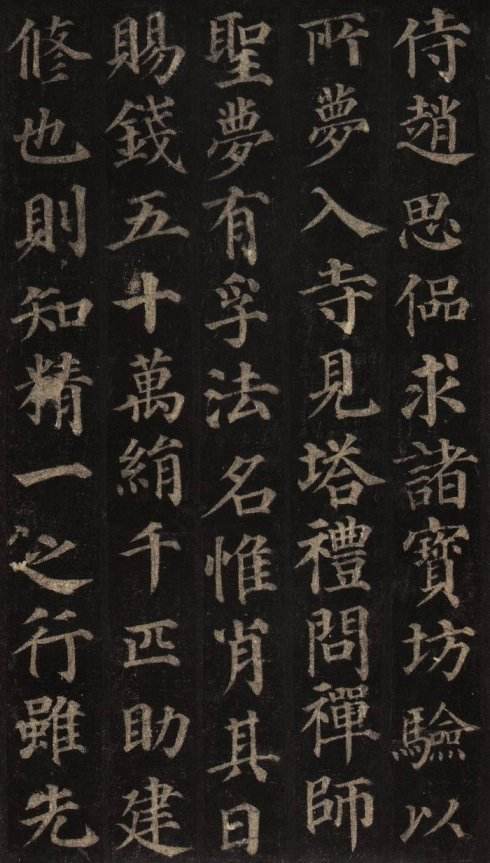 侍趙思侶求諸寶坊驗以
所夢入寺見塔禮問禪師
聖夢有孚法名惟肖其日
賜錢五十萬絹千匹助建
修也則知精一之行雖先